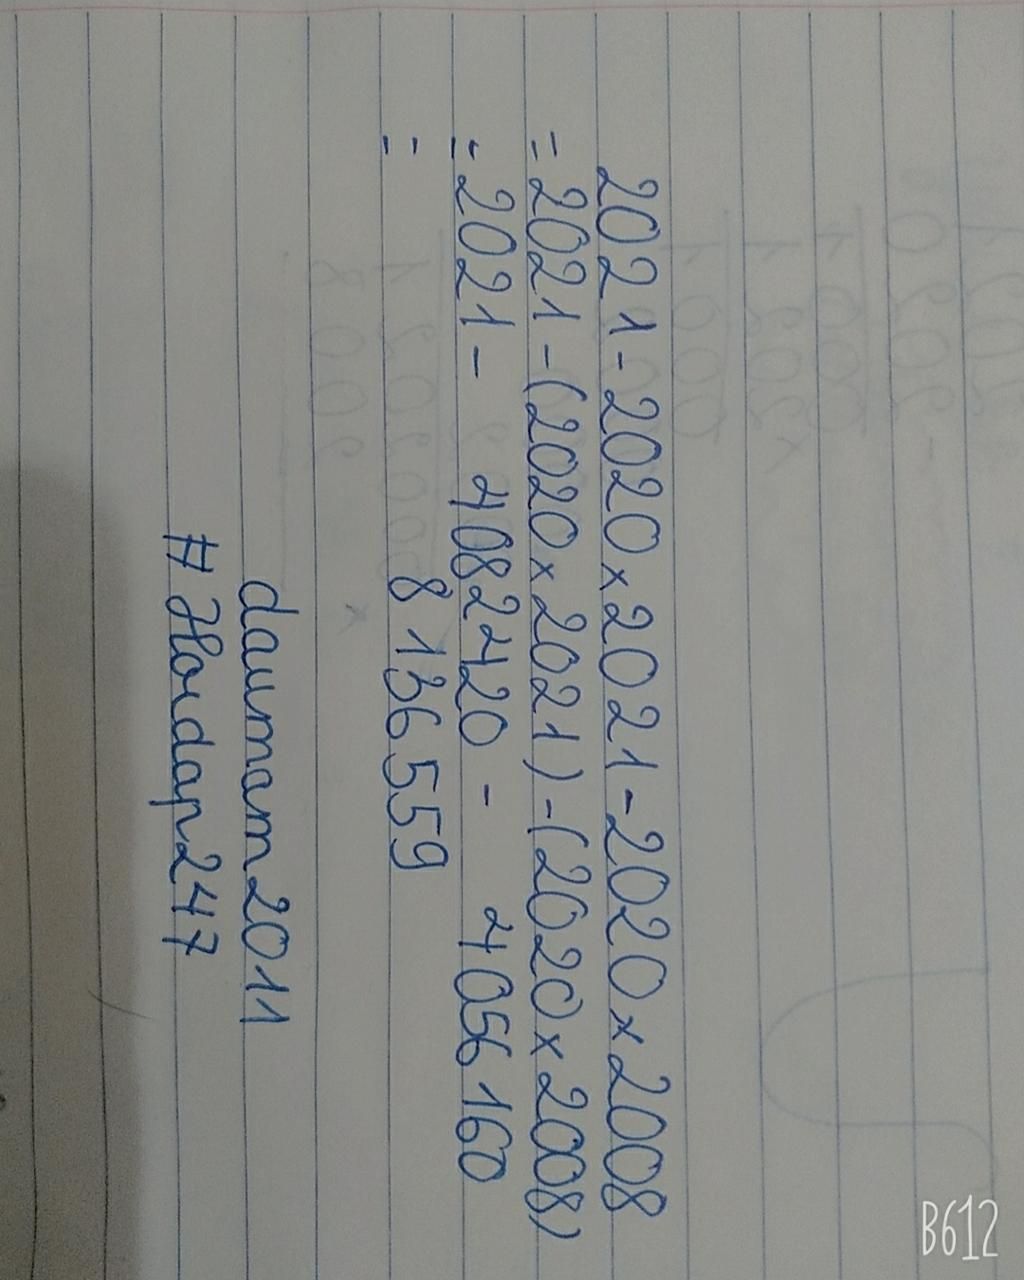 2021-2020×2021-2020×2008
=2021-(2020×2021)-(2020×2008)
=2021- 4082420 - 4056160
= 8136559
daumam2011
#Hoidap247
B612